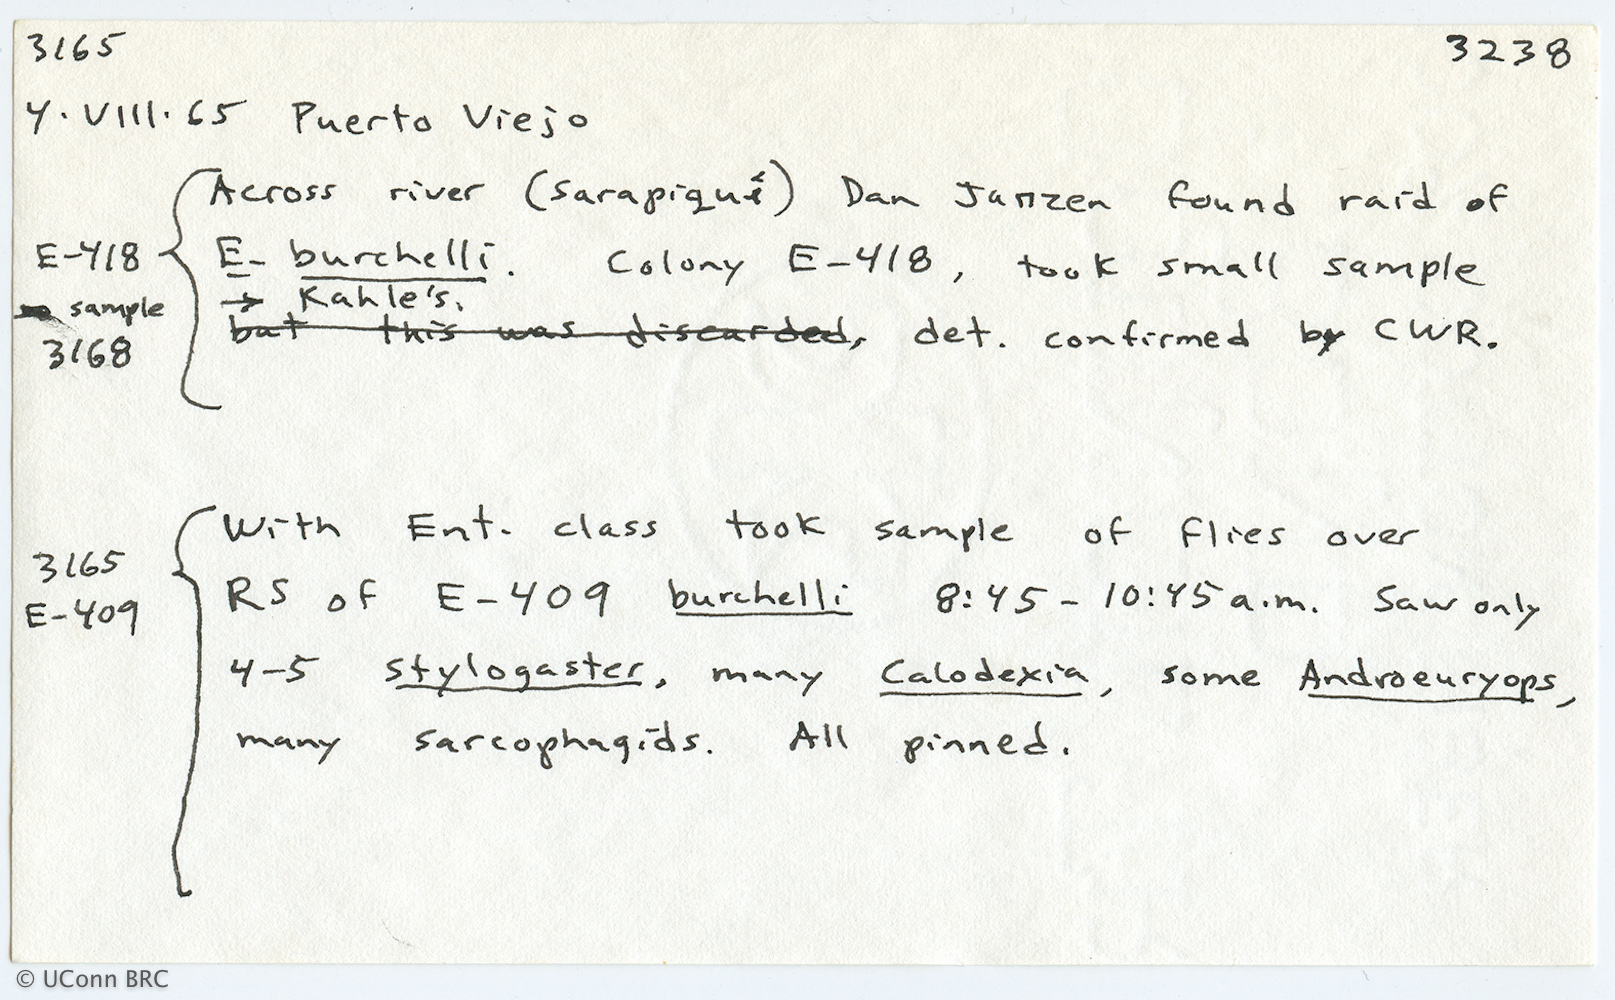 3165 3238
4.VIII.65 Puerto Viejo
Across river (Sarapiquí) Dan Janzen found raid of
E-418 E- burchelli. Colony E-418, took small sample
→ Kahle's.
sample but this was discarded, det. confirmed by CWR.
3168
With Ent. class took sample of flies over
3165
E-409 RS of E-409 burchelli 8:45-10:45 a.m. Saw only
4-5 Stylogaster, many Calodexia, some Androeuryops,
many sarcophagids. All pinned.
© UConn BRC